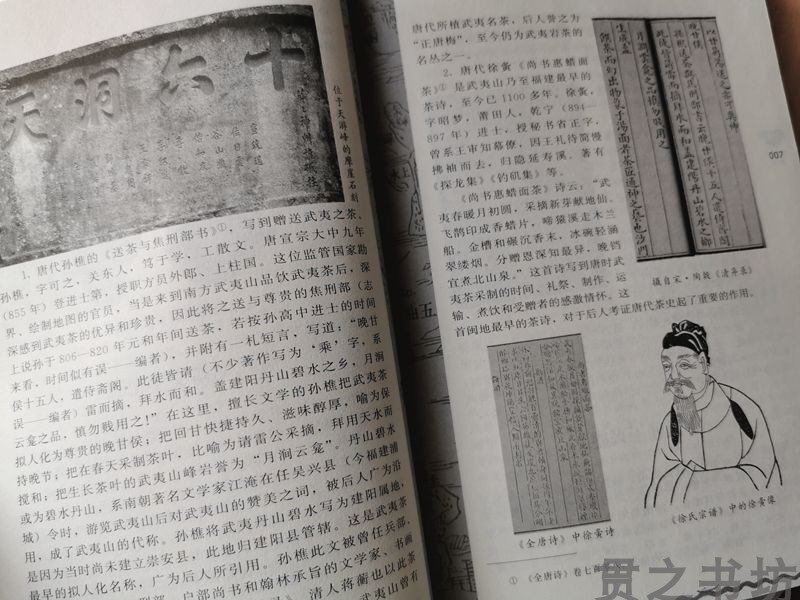 十六洞天
位于天游峰的摩崖石刻
1. 唐代孙樵的《送茶与焦刑部书》①，写到赠送武夷之茶。
孙樵，字可之，关东人，笃于学，工散文。唐宣宗大中九年
（855年）登进士第，授职方员外郎、上柱国。这位监管国家勘
界、绘制地图的官员，当是来到南方武夷山品饮武夷茶后，深
深感到武夷茶的优异和珍贵，因此将之送与尊贵的焦刑部（志
上说孙于806—820年元和年间送茶，若按孙高中进士的时间
来看，时间似有误——编者），并附有一札短言，写道：“晚甘
侯十五人，遣侍斋阁。此徒皆请（不少著作写为‘乘’字，系
误——编者）雷而摘，拜水而和。盖建阳丹山碧水之乡，月涧
云龛之品，慎勿贱用之！”在这里，擅长文学的孙樵把武夷茶
拟人化为尊贵的晚甘侯；把回甘快捷持久、滋味醇厚，喻为保
持晚节；把在春天采制茶叶，比喻为请雷公采摘，拜用天水而
搅和；把生长茶叶的武夷山峰岩誉为“月涧云龛”。丹山碧水
或为碧水丹山，系南朝著名文学家江淹在任吴兴县（今福建浦
城）令时，游览武夷山后对武夷山的赞美之词，被后人广为沿
用，成了武夷山的代称。孙樵将武夷丹山碧水写为建阳属地，
是因为当时尚未建立崇安县，此地归建阳县管辖。这是武夷茶
最早的拟人化名称，广为后人所引用。孙樵此文被曾任兵部、
户部尚书和翰林承旨的文学家、书画
清人蒋蘅也以此茶
武夷山曾有
唐代所植武夷名茶，后人誉之为
“正唐梅”，至今仍为武夷岩茶的
名丛之一。
2. 唐代徐夤《尚书惠蜡面
茶》①是武夷山乃至福建最早的
茶诗，至今已1100多年。徐夤，
字昭梦，莆田人，乾宁（894—
897年）进士，授秘书省正字，
曾系王审知幕僚，因王礼待简慢
拂袖而去，归隐延寿溪。著有
《探龙集》《钓矶集》等。
《尚书惠蜡面茶》诗云：“武
夷春暖月初圆，采摘新芽献地仙。
飞鹊印成香蜡片，啼猿溪走木兰
船。金槽和碾沉香末，冰碗轻涵
翠缕烟。分赠恩深知最异，晚铛
宜煮北山泉。”这首诗写到唐时武
夷茶采制的时间、礼祭、制作、运
输、煮饮和受赠者的感激情怀。这
首闽地最早的茶诗，对于后人考证唐代茶史起了重要的作用。
007
摄自宋·陶毂《清异录》
《全唐诗》中徐夤诗
《徐氏宗谱》中的徐夤像
① 《全唐诗》卷七
贯之书坊